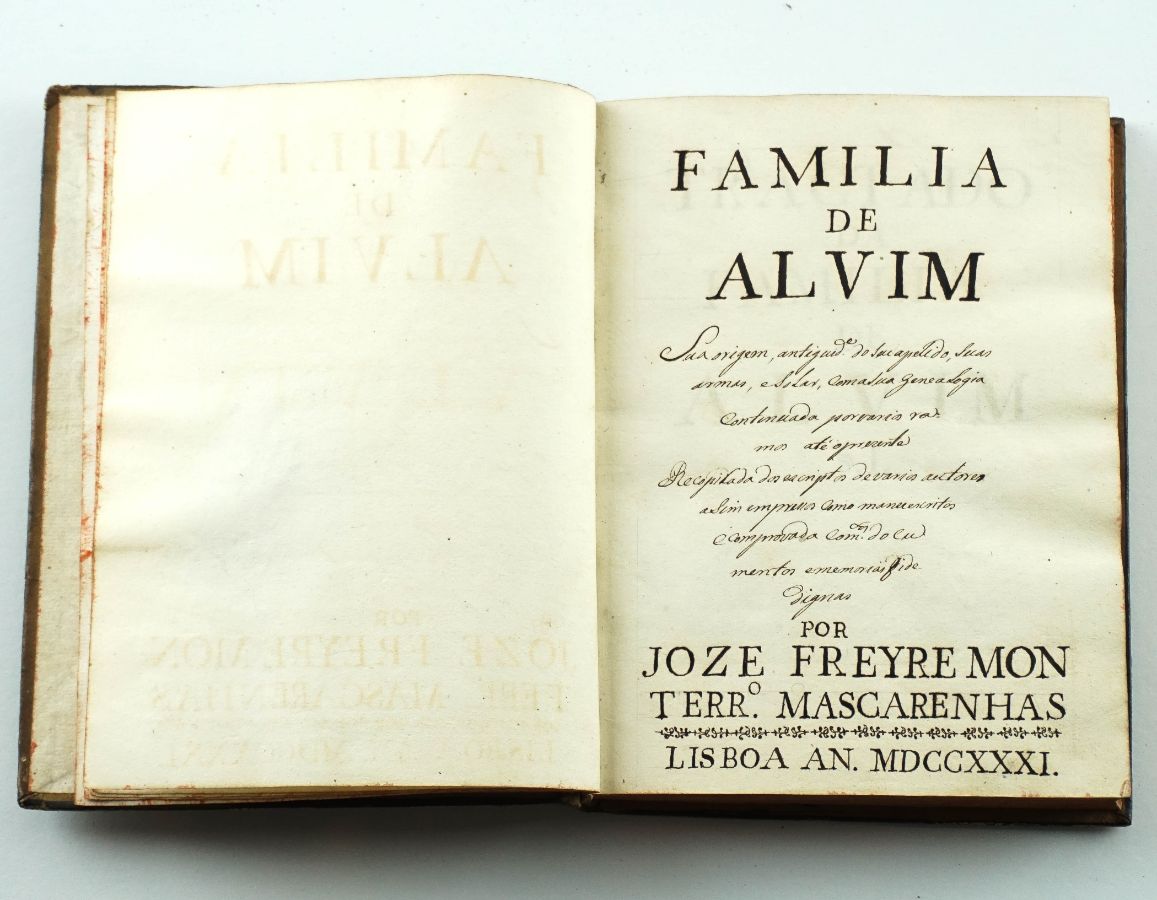 FAMILIA
DE
ALVIM
Sua origem, antiguid.e do seu apelido, suas
armas, e Solar, com a sua Genealogia
Continuada por varios ra-
mos até o prezente
Recopilada dos escriptos de varios auctores
assim empressos como manuescritos
e comprovada com.m docu
mentos e memorias fide
dignas
POR
JOZE FREYRE MON
TERR.o MASCARENHAS
LISBOA AN. MDCCXXXI.